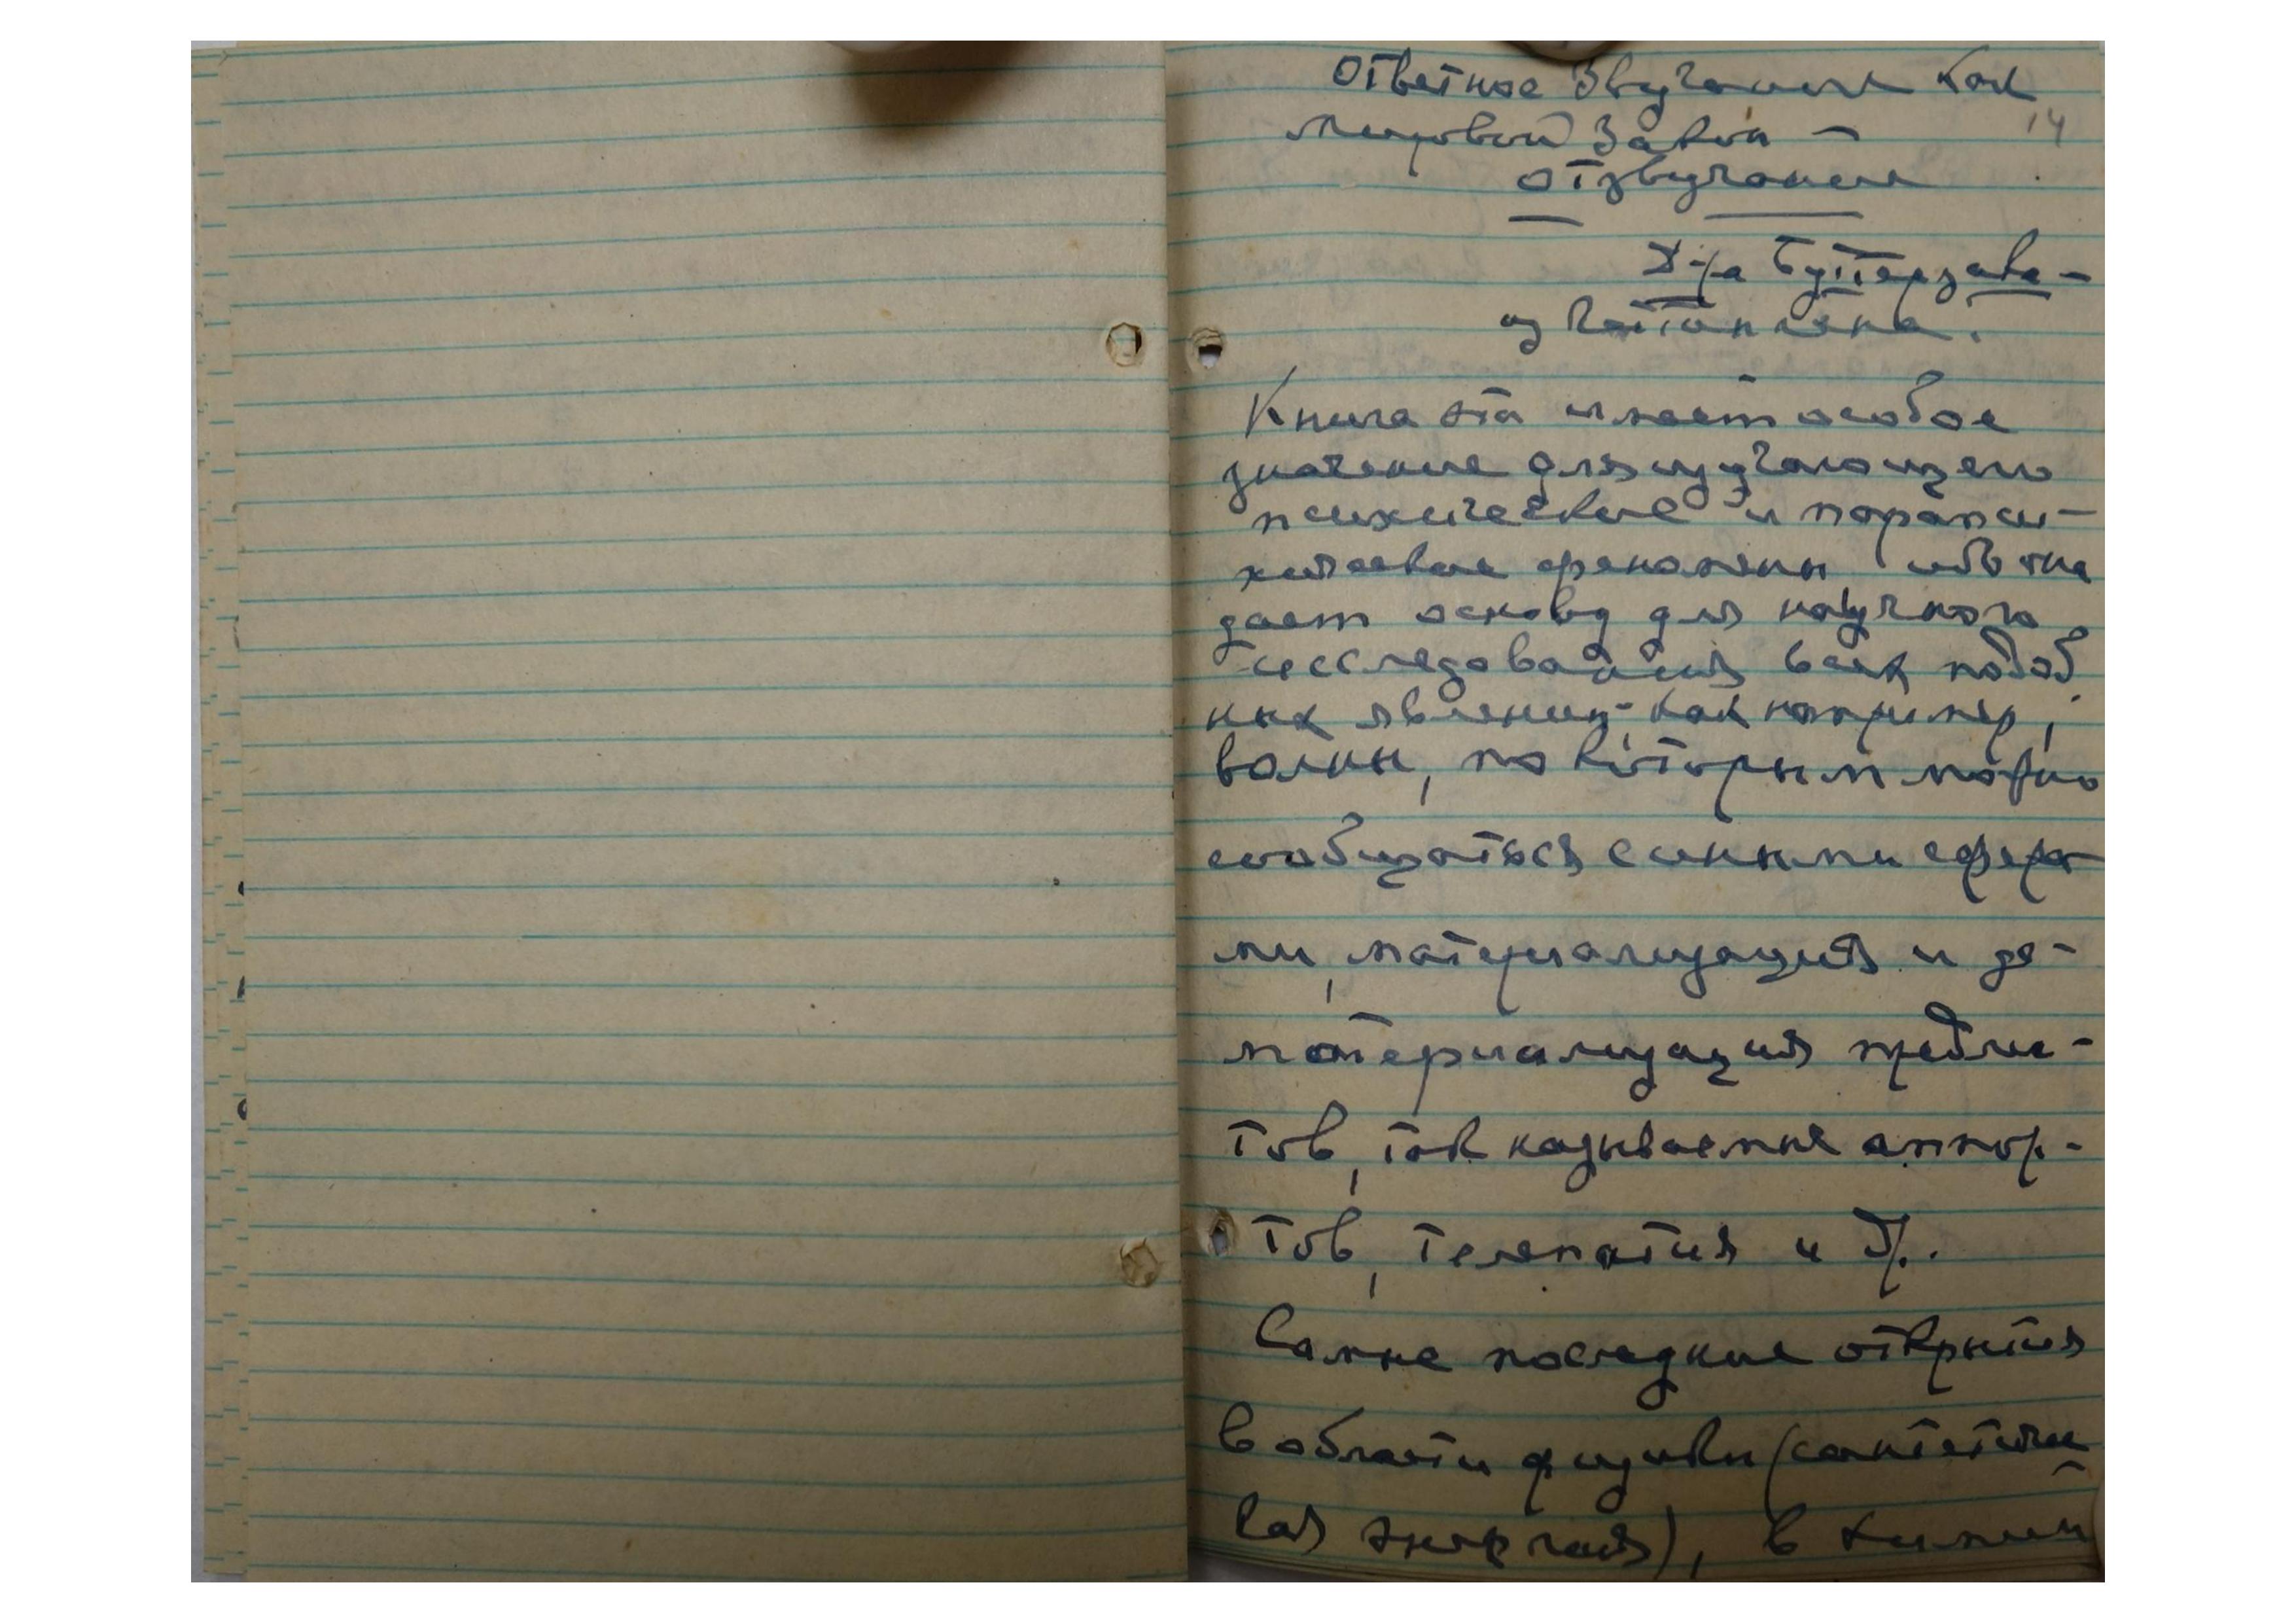 Ответное Звучание как
14
Мировой Закон –
отзвучания
Д-ра Бутерзаве –
из
Книга эта имеет особое
значение для изучающего
психические и парапси-
хические феномены, ибо она
дает основу для научного
исследования всех подоб
ных явлений, как например,
волны, по которым можно
сообщаться с иными сфера
ми, материализация и де-
материализация предме-
тов, так называемые аппор-
тов, телепатия и др.
Самые последние открытия
в области физики (синтетиче
кая энергия), в химии